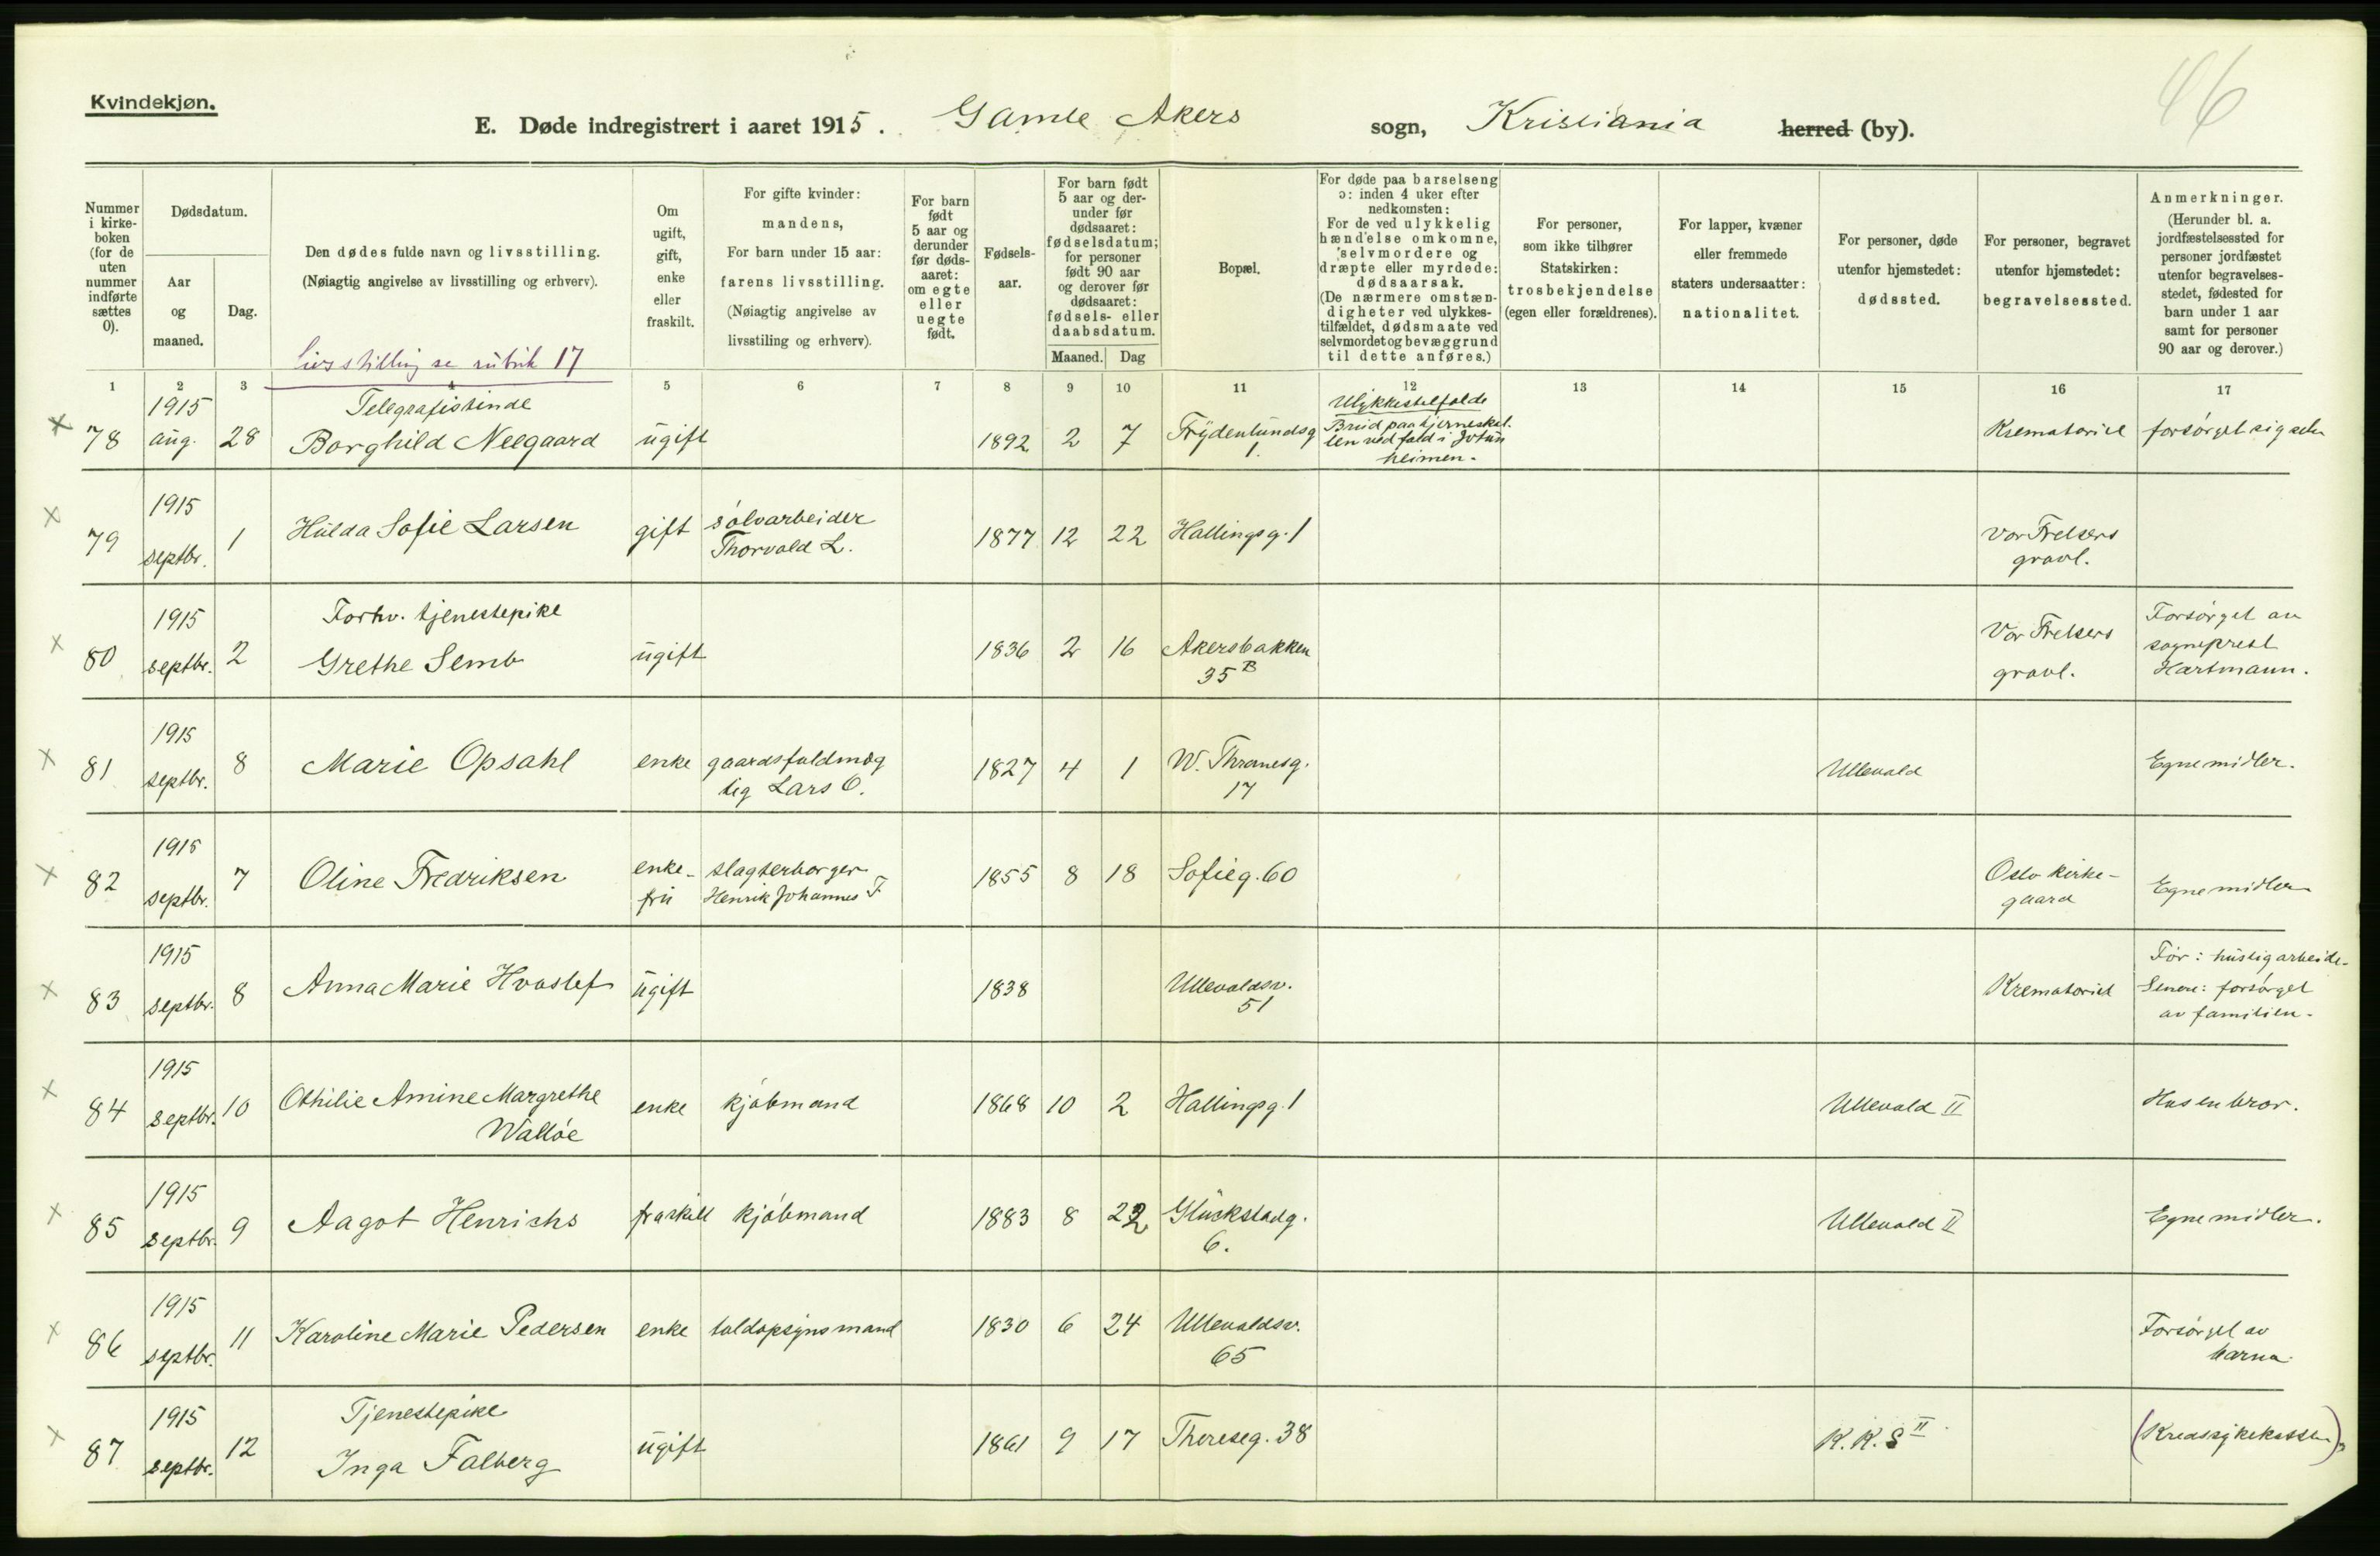 46
Kvindekjøn.
E. Døde indregistrert i aaret 1915. Gamle Akers sogn, Kristiania herred (by).
Nummer i kirke-boken (for de uten nummer indførte sættes 0).
Dødsdatum.
Aar og maaned.
Dag.
Den dødes fulde navn og livsstilling.
(Nøiagtig angivelse av livsstilling og erhverv).
livsstilling se rubrik 17
Om ugift, gift, enke eller fraskilt.
For gifte kvinder: mandens,
For barn under 15 aar: farens livsstilling.
(Nøiagtig angivelse av livsstiling og erhverv).
For barn født 5 aar og derunder før døds-aaret: om egte eller uegte født.
Fødsels-aar.
For barn født 5 aar og der-under før dødsaaret: fødselsdatum; for personer født 90 aar og derover før dødsaaret: fødsels- eller daabsdatum.
Maaned. Dag
Bopæl.
For døde paa barselseng ɔ: inden 4 uker efter nedkomsten:
For de ved ulykkelig hændelse omkomne, selvmordere og dræpte eller myrdede: dødsaarsak.
(De nærmere omstæn-digheter ved ulykkes-tilfældet, dødsmaate ved selvmordet og bevæggrund til dette anføres.)
For personer, som ikke tilhører Statskirken: trosbekjendelse (egen eller forældrenes).
For lapper, kvæner eller fremmede staters undersaatter: nationalitet.
For personer, døde utenfor hjemstedet: dødssted.
For personer, begravet utenfor hjemstedet: begravelsessted.
Anmerkninger.
(Herunder bl. a. jordfæstelsessted for personer jordfæstet utenfor begravelses-stedet, fødested for barn under 1 aar samt for personer 90 aar og derover.)
1 2 3 4 5 6 7 8 9 10 11 12 13 14 15 16 17
× 78 1915 aug. 28 Telegrafistinde Borghild Neegaard ugift 1892 2 7 Frydenlundsg 1. Ulykkestilfælde Brud paa hjerneskal-len ved fald i Jotun heimen. Krematoriet forsørget sig selv
× 79 1915 septbr. 1 Hulda Sofie Larsen gift sølvarbeider Thorvald L. 1877 12 22 Hallingsg. 1 Vor Frelsers gravl.
× 80 1915 septbr. 2 Forhv. tjenestepike Grethe Semb ugift 1836 2 16 Akersbakken 35 B Vor Frelsers gravl. Forsørget av sogneprest Hartmann.
× 81 1915 septbr. 8 Marie Opsahl enke gaardsfuldmæg tig Lars O. 1827 4 1 W. Thranesg. 17 Ullevold Egne midler.
× 82 1915 septbr. 7 Oline Fredriksen enke-fru slagterborger Henrik Johannes F 1855 8 18 Sofieg. 60 Oslo kirke-gaard Egne midler
× 83 1915 septbr. 8 Anna Marie Hvoslef ugift 1838 Ullevoldsv. 51 Krematoriet Før: huslig arbeide- Senere: forsørget av familien.
× 84 1915 septbr. 10 Othilie Amine Margrethe Walløe enke kjøbmand 1868 10 2 Hallingsg. 1 Ullevold II Hos en bror.
× 85 1915 septbr. 9 Aagot Henrichs fraskilt kjøbmand 1883 8 22 Glückstadg. 6. Ullevold II Egne midler.
× 86 1915 septbr. 11 Karoline Marie Pedersen enke toldopsynsmand 1830 6 24 Ullevoldsv. 65 Forsørget av barna.
× 87 1915 septbr. 12 Tjenestepike Inga Falberg ugift 1861 9 17 Thereseg. 38 K. K. S II. (Kredssykekassen)